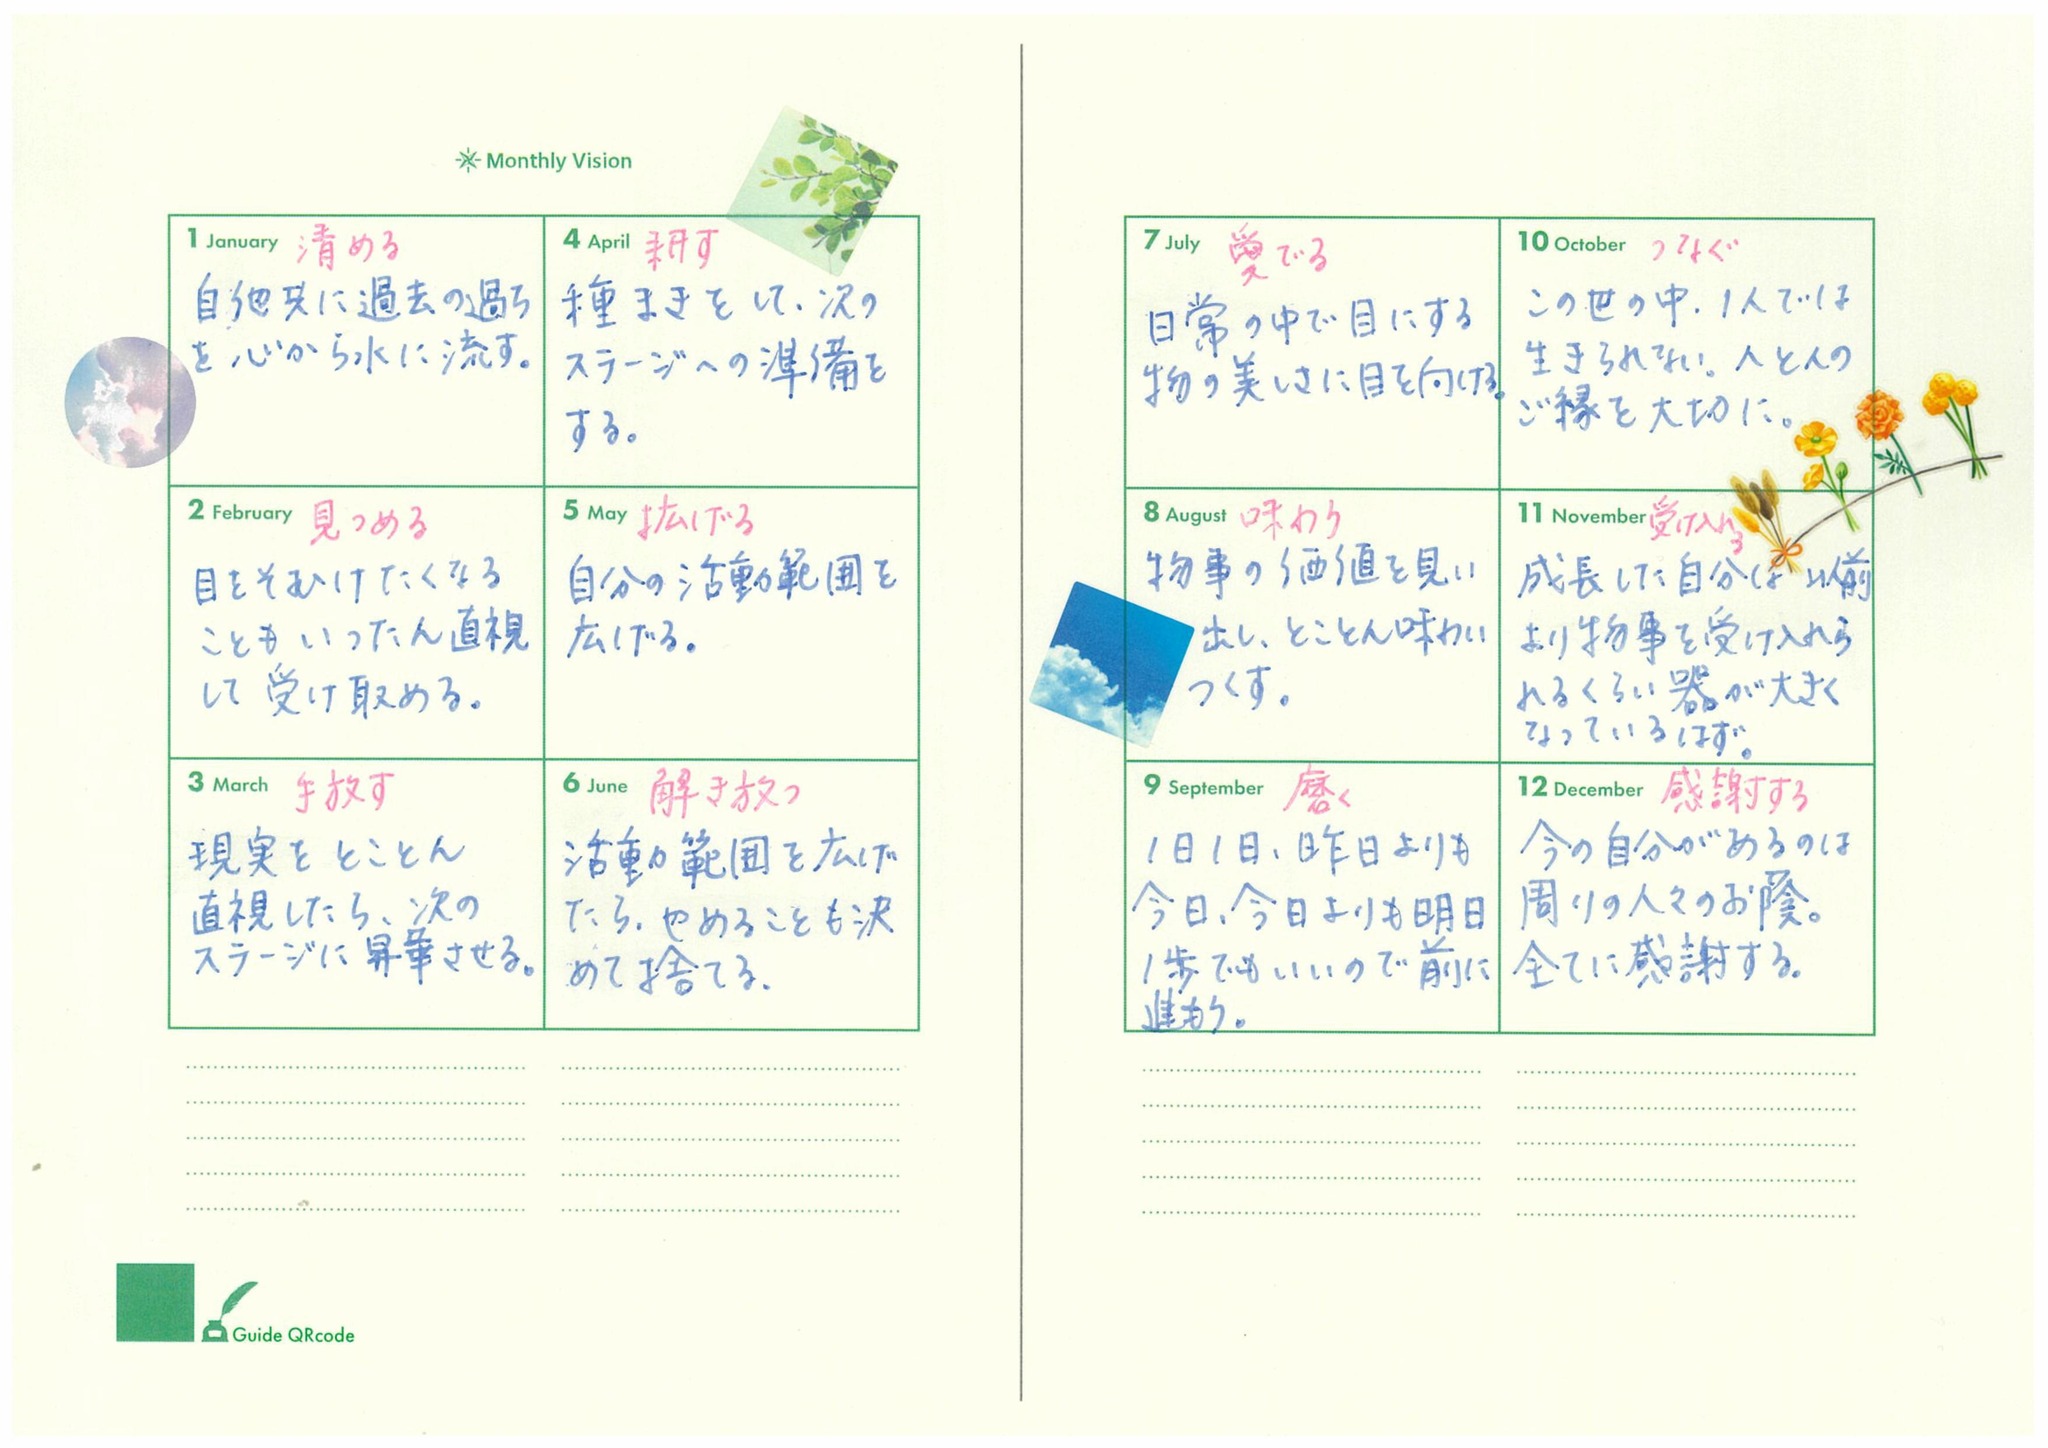 Monthly Vision
1 January 清める
自他共に過去の過ち
を心から水に流す。
2 February 見つめる
目をそむけたくなる
こともいったん直視
して受け取める。
3 March 手放す
現実をとことん
直視したら、次の
ステージに昇華させる。
4 April 耕す
種まきをして、次の
ステージへの準備を
する。
5 May 広げる
自分の活動範囲を
広げる。
6 June 解き放つ
活動範囲を広げ
たら、やめることも決
めて捨てる。
7 July 愛でる
日常の中で目にする
物の美しさに目を向ける。
8 August 味わう
物事の価値を見い
出し、とことん味わい
つくす。
9 September 磨く
1日1日、昨日よりも
今日、今日よりも明日
1歩でもいいので前に
進もう。
10 October つなぐ
この世の中、1人では
生きられない。人と人の
ご縁を大切に。
11 November 受け入れ
る
成長した自分は以前
より物事を受け入れら
れるくらい器が大きく
なっているはず。
12 December 感謝する
今の自分があるのは
周りの人々のお陰。
全てに感謝する。
Guide QRcode